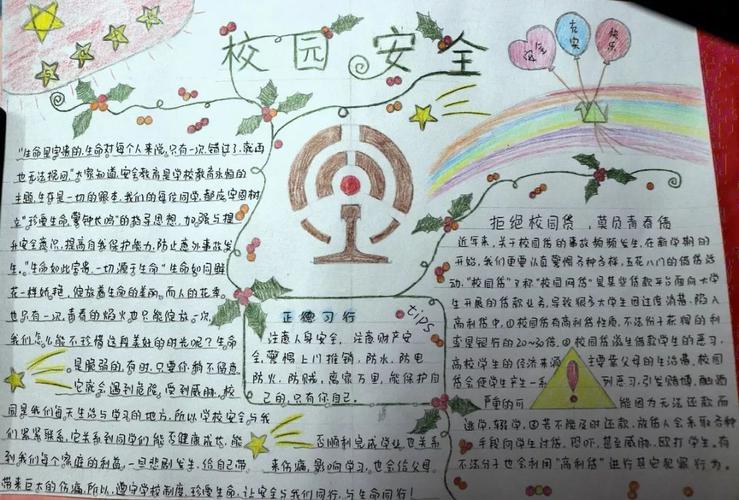 校园安全
安全
充实
快乐
"生命是宝贵的,生命对每个人来说,只有一次,错过了,就再
也无法挽回"大家知道,安全教育是学校教育永恒的
主题,生存是一切的根本,我们的每位同学,都应牢固树
立"珍爱生命,警钟长鸣"的指导思想,加强与提
升安全意识,提高自我保护能力,防止意外事故发
生。"生命如此宝贵,一切源于生命"生命如同鲜
花一样娇艳,绽放着生命的美丽。而人的花季,
也只有一次,青春的焰火也只能绽放一次,
我们怎么能不珍惜这段美好的时光呢?生命
是脆弱的,有时,只要你稍不留意
它就会遇到危险,受到威胁。校
园是我们每天生活与学习的地方,所以学校安全与我
们紧紧联系,它关系到同学们能否健康成长,能
否顺利完成学业,也关系
到我们每个家庭的利益。一旦悲剧发生,给自己带
来伤痛,影响学习,也会给父母
带来巨大的伤痛,所以,遵守学校制度,珍爱生命,让安全与我们同行,与生命同行!
正德习行
tips
注意人身安全,注意财产安
全,警惕上门推销,防水,防电
防火,防贼,离家万里,能保护自
己的,只有你自己.
拒绝校园贷,莫负青春债
近年来,关于校园贷的事故频频发生,在新学期的
开始,我们更要认真警惕各种各样,五花八门的借贷活
动,"校园贷"又称"校园网贷"是某些贷款平台面向大学
生开展的贷款业务,导致很多大学生因过度消费,陷入
高利贷中,①校园贷有高利贷性质,不法份子花样的利
率是银行的20~30倍,②校园贷滋生借款学生的恶习,
高校学生的经济来源主要靠父母的生活费,校园
贷会使学生产生一系列恶习,引发赌博,酗酒
严重的可能因为无法还款而
逃学,辍学,③若不能及时还款,放贷人会采取各种
手段向学生讨债,恐吓,甚至威胁,殴打学生,有
不法分子也会利用"高利贷"进行其它犯罪行为。